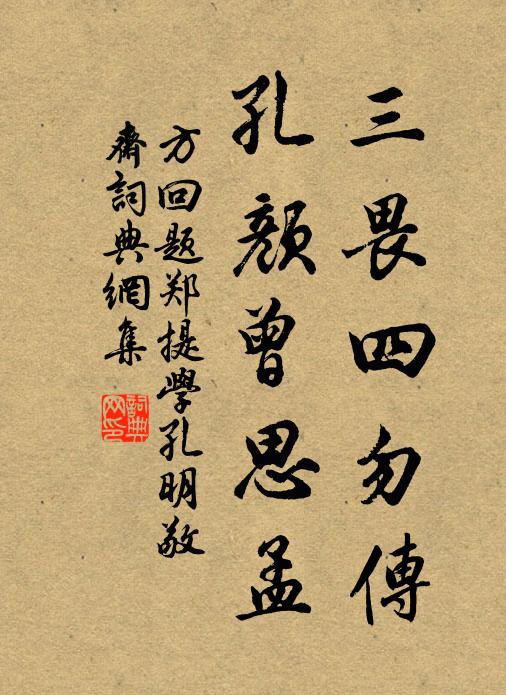 三畏四勿傳
孔顏曾思孟
方回题郑提學孔明敬
齋詞典網集
詞典
网印